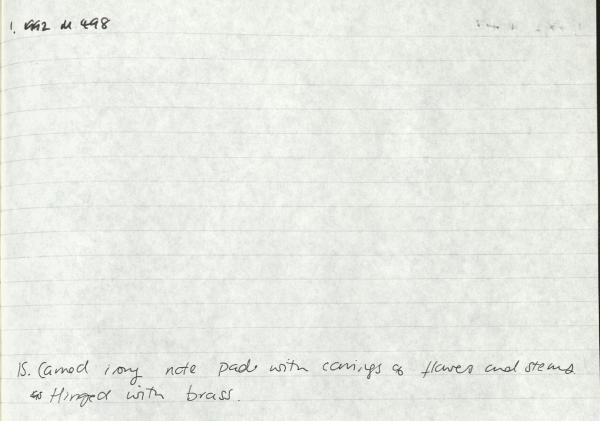 1. 1992 M 498
15. Carved ivory note pad with carvings of flowers and stems
Hinged with brass.